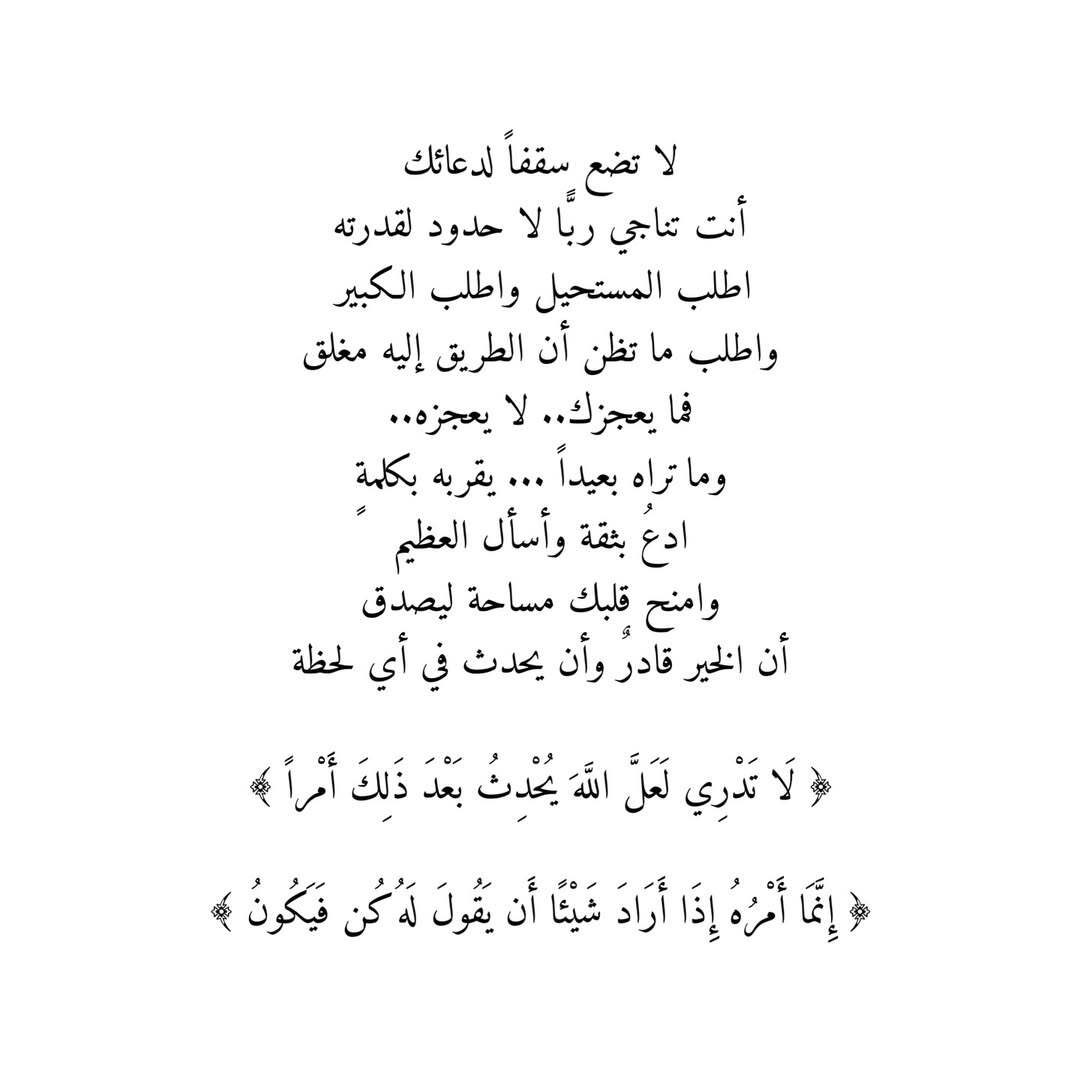 لا تضع سقفاً لدعائك
أنت تناجي ربًّا لا حدود لقدرته
اطلب المستحيل واطلب الكبير
واطلب ما تظن أن الطريق إليه مغلق
فما يعجزك.. لا يعجزه..
وما تراه بعيداً ... يقربه بكلمةٍ
ادعُ بثقة وأسأل العظيم
وامنح قلبك مساحة ليصدق
أن الخير قادرٌ وأن يحدث في أي لحظة
﴿ لَا تَدْرِي لَعَلَّ اللَّهَ يُحْدِثُ بَعْدَ ذَلِكَ أَمْراً ﴾
﴿ إِنَّمَا أَمْرُهُ إِذَا أَرَادَ شَيْئًا أَن يَقُولَ لَهُ كُن فَيَكُونُ ﴾